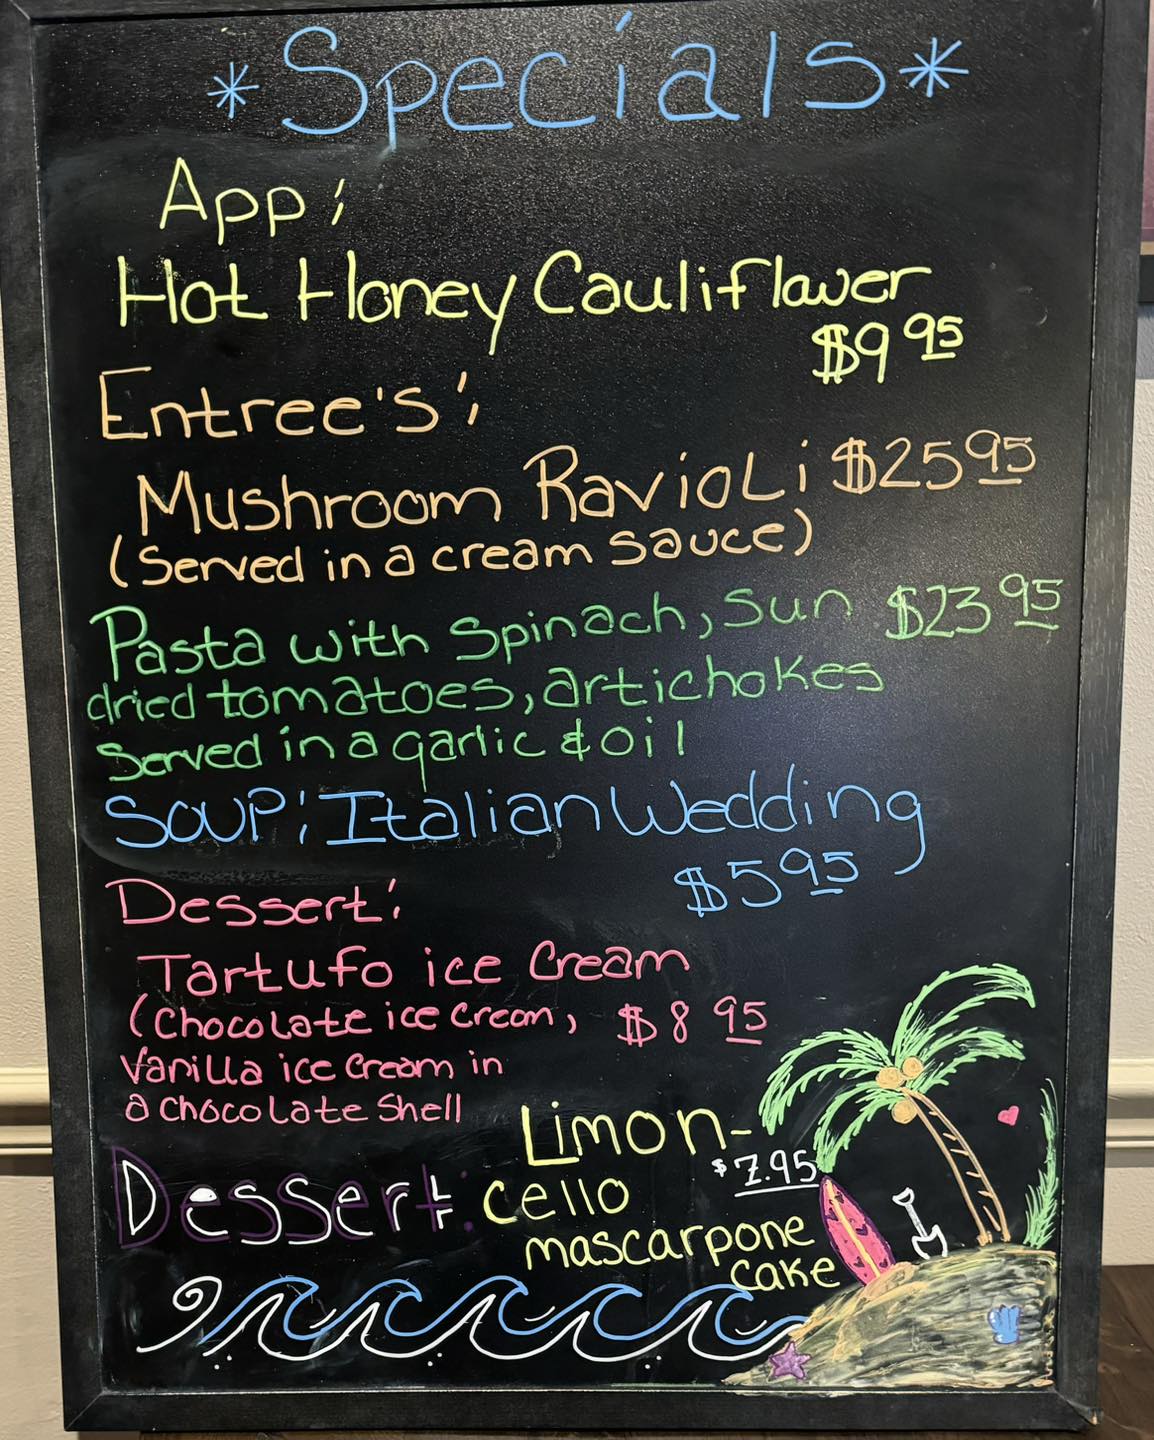 *Specials*
App:
Hot Honey Cauliflower
$9 95
Entree's:
Mushroom Ravioli $25 95
(Served in a cream sauce)
Pasta with Spinach, Sun $23 95
dried tomatoes, artichokes
Served in a garlic & oil
SOUP: Italian Wedding
$5 95
Dessert:
Tartufo ice Cream
(Chocolate ice Cream, $8 95
Vanilla ice Cream in
a Chocolate Shell
Dessert: Limon-
cello
$7.95
mascarpone
cake